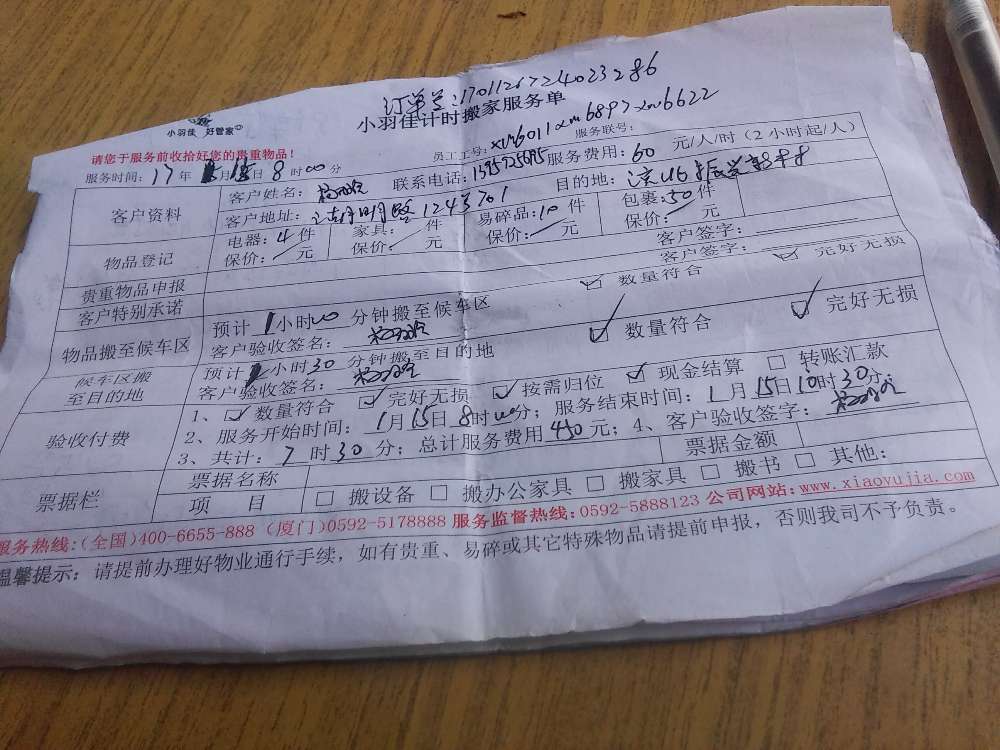 订单号:170112672402 3286
小羽佳 好管家
小羽佳计时搬家服务单
请您于服务前收拾好您的贵重物品!
员工工号: xm6011 xm6897 xm6622 服务联号:
服务时间: 17 年 月 15 日 8 时 00 分 联系电话: 服务费用: 60 元/人/时 (2 小时起/人)
客户资料 客户姓名: 目的地:
客户地址:
物品登记 电器: 4 件 家具: 件 易碎品: 10 件 包裹: 50 件
保价: 元 保价: 元 保价: 元 保价: 元
贵重物品申报 客户签字:
客户特别承诺 客户签字:
物品搬至候车区 预计 1 小时 00 分钟搬至候车区 数量符合 完好无损
客户验收签名:
候车区搬至目的地 预计 小时 30 分钟搬至目的地 数量符合 完好无损
客户验收签名:
验收付费 1、 数量符合 完好无损 按需归位 现金结算 转账汇款
2、服务开始时间: 1 月 15 日 8 时 00 分; 服务结束时间: 1 月 15 日 10 时 30 分;
3、共计: 7 时 30 分; 总计服务费用 450 元; 4、客户验收签字:
票据栏 票据名称 票据金额
项 目 搬设备 搬办公家具 搬家具 搬书 其他:
服务热线:(全国)400-6655-888 (厦门)0592-5178888 服务监督热线:0592-5888123 公司网站:www.xiaoyujia.com
温馨提示: 请提前办理好物业通行手续, 如有贵重、易碎或其它特殊物品请提前申报, 否则我司不予负责。